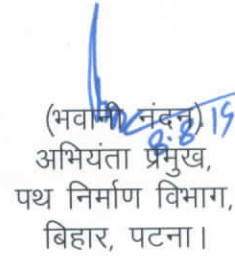 (भवानी नंदन)
8.8.19
अभियंता प्रमुख,
पथ निर्माण विभाग,
बिहार, पटना।